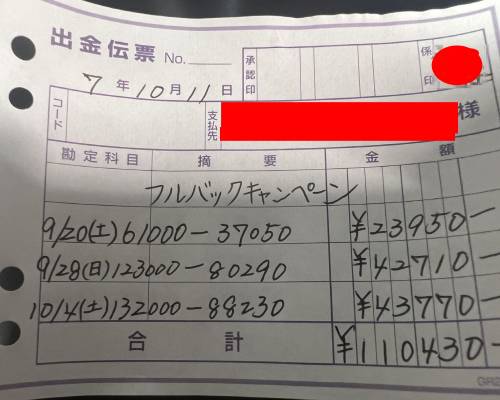 出金伝票 No.
承認印
係印
7年10月11日
コード
支払先
様
勘定科目 摘要 金額
フルバックキャンペーン
9/20(土)61000-37050 ¥23950-
9/28(日)123000-80290 ¥42710-
10/4(土)132000-88230 ¥43770-
合計 ¥110430-